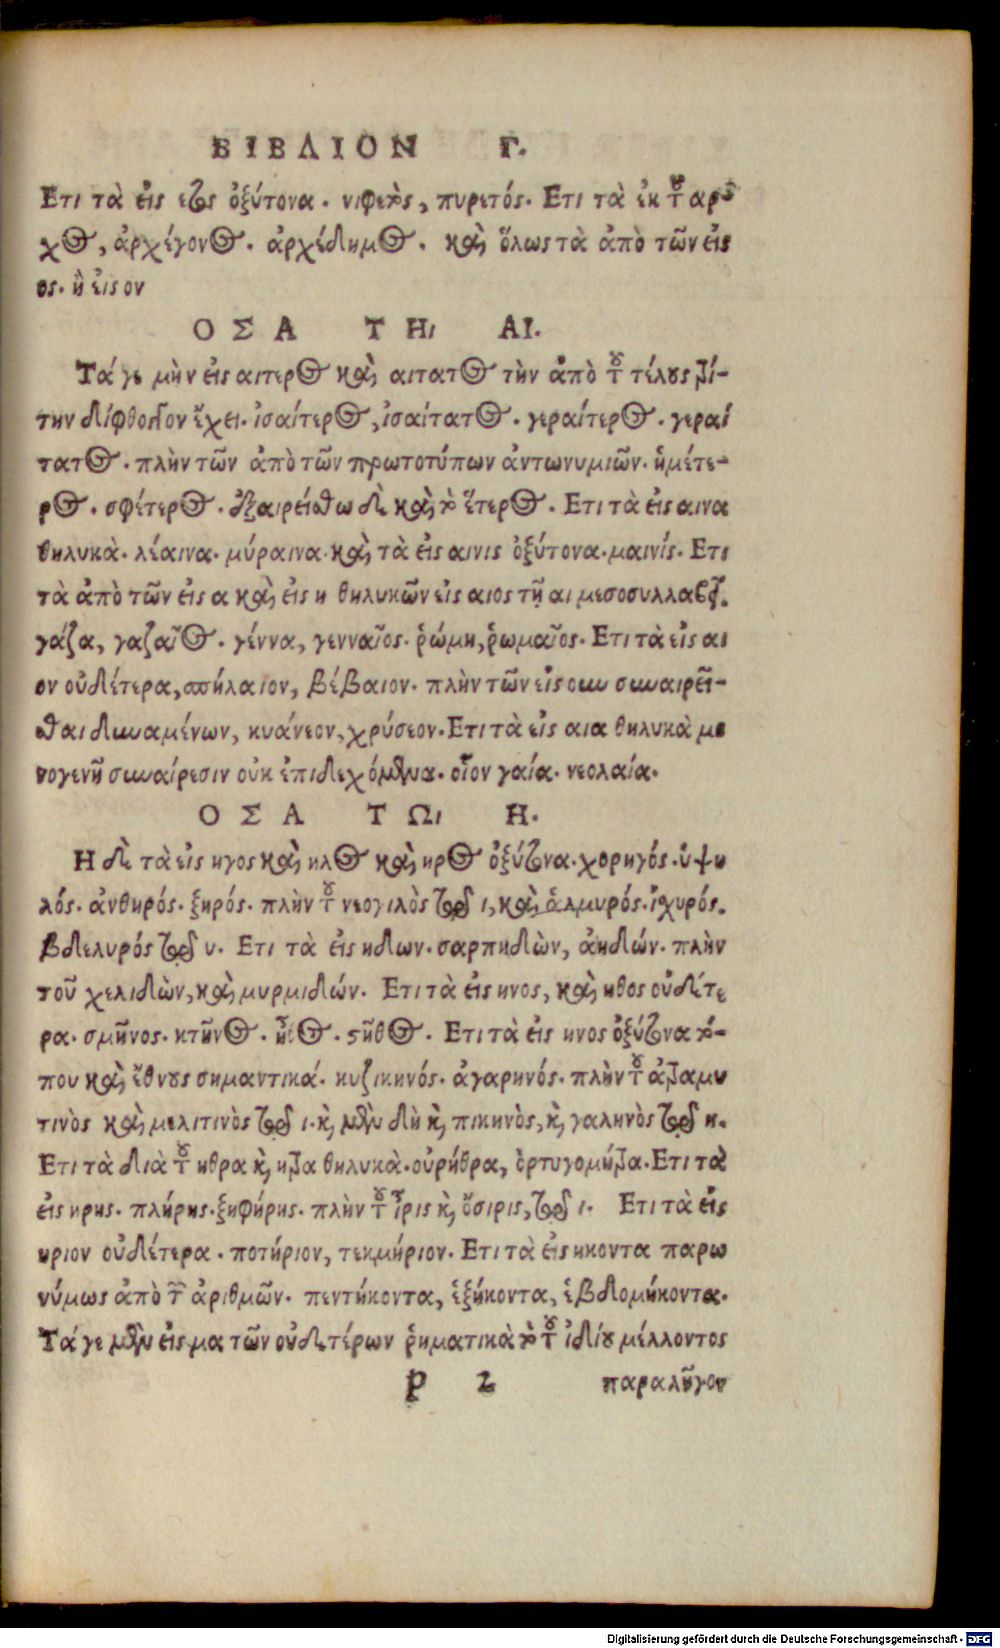 ΒΙΒΛΙΟΝ Γ.
Ετι τὰ εἰς ετος ὀξύτονα. νιφετὸς, πυρετός. Ετι τὰ ἐκ τοῦ αρ
χος, ἀρχέγονος. ἀρχέδημος. καὶ ὅλως τὰ ἀπὸ τῶν εἰς
ος. ἢ εἰς ον
ΟΣΑ ΤΗ͵ ΑΙ.
Τά γε μὴν εἰς αιτερος καὶ αιτατος τὴν ἀπὸ τοῦ τέλους τρί-
την δίφθογγον ἔχει. ἰσαίτερος, ἰσαίτατος. γεραίτερος. γεραί
τατος. πλὴν τῶν ἀπὸ τῶν πρωτοτύπων ἀντωνυμιῶν. ἡμέτε-
ρος. σφέτερος. ἐξαιρείσθω δὲ καὶ τὸ ἕτερος. Ετι τὰ εἰς αινα
θηλυκὰ. λέαινα. μύραινα. καὶ τὰ εἰς αινις ὀξύτονα. μαινίς. Ετι
τὰ ἀπὸ τῶν εἰς α καὶ εἰς η θηλυκῶν εἰς αιος τῇ αι μεσοσυλλαβεῖ.
γάζα, γαζαῖος. γέννα, γενναῖος. ῥώμη, ῥωμαῖος. Ετι τὰ εἰς αι
ον οὐδέτερα, σπήλαιον, βέβαιον. πλὴν τῶν εἰς ουν συναιρεῖ-
σθαι δυναμένων, κυάνεον, χρύσεον. Ετι τὰ εἰς αια θηλυκὰ μο
νογενῆ συναίρεσιν οὐκ ἐπιδεχόμενα. οἷον γαία. νεολαία.
ΟΣΑ ΤΩ͵ Η.
Η δὲ τὰ εἰς ηγος καὶ ηλος καὶ ηρος ὀξύτονα. χορηγός. ὑψη
λός. ἀνθηρός. ξηρός. πλὴν τοῦ νεογιλὸς διὰ τοῦ ι, καὶ ἁλμυρός. ἰσχυρός.
βδελυρός διὰ τοῦ υ. Ετι τὰ εἰς ηδων. σαρπηδὼν, ἀηδών. πλὴν
τοῦ χελιδὼν, καὶ μυρμιδών. Ετι τὰ εἰς ηνος, καὶ ηθος οὐδέτε
ρα. σμῆνος. κτῆνος. ἦθος. στῆθος. Ετι τὰ εἰς ηνος ὀξύτονα τό-
που καὶ ἔθνους σημαντικά. κυζικηνός. ἀγαρηνός. πλὴν τοῦ ἀτραμυ
τινὸς καὶ μελιτινὸς διὰ τοῦ ι. καὶ μὲν δὴ καὶ πικηνὸς, καὶ γαληνὸς διὰ τοῦ η.
Ετι τὰ διὰ τοῦ ηθρα καὶ ητρα θηλυκὰ. οὐρήθρα, ὀρτυγομήτρα. Ετι τὰ
εἰς ηρης. πλήρης. ξιφήρης. πλὴν τοῦ ἶρις καὶ ὄσιρις, διὰ τοῦ ι. Ετι τὰ εἰς
ηριον οὐδέτερα. ποτήριον, τεκμήριον. Ετι τὰ εἰς ηκοντα παρω
νύμως ἀπὸ τῶν ἀριθμῶν. πεντήκοντα, ἑξήκοντα, ἑβδομήκοντα.
Τά γε μὲν εἰς μα τῶν οὐδετέρων ῥηματικὰ τὸ τοῦ ἰδίου μέλλοντος
Ρ 2 παραλῆγον
Digitalisierung gefördert durch die Deutsche Forschungsgemeinschaft - DFG